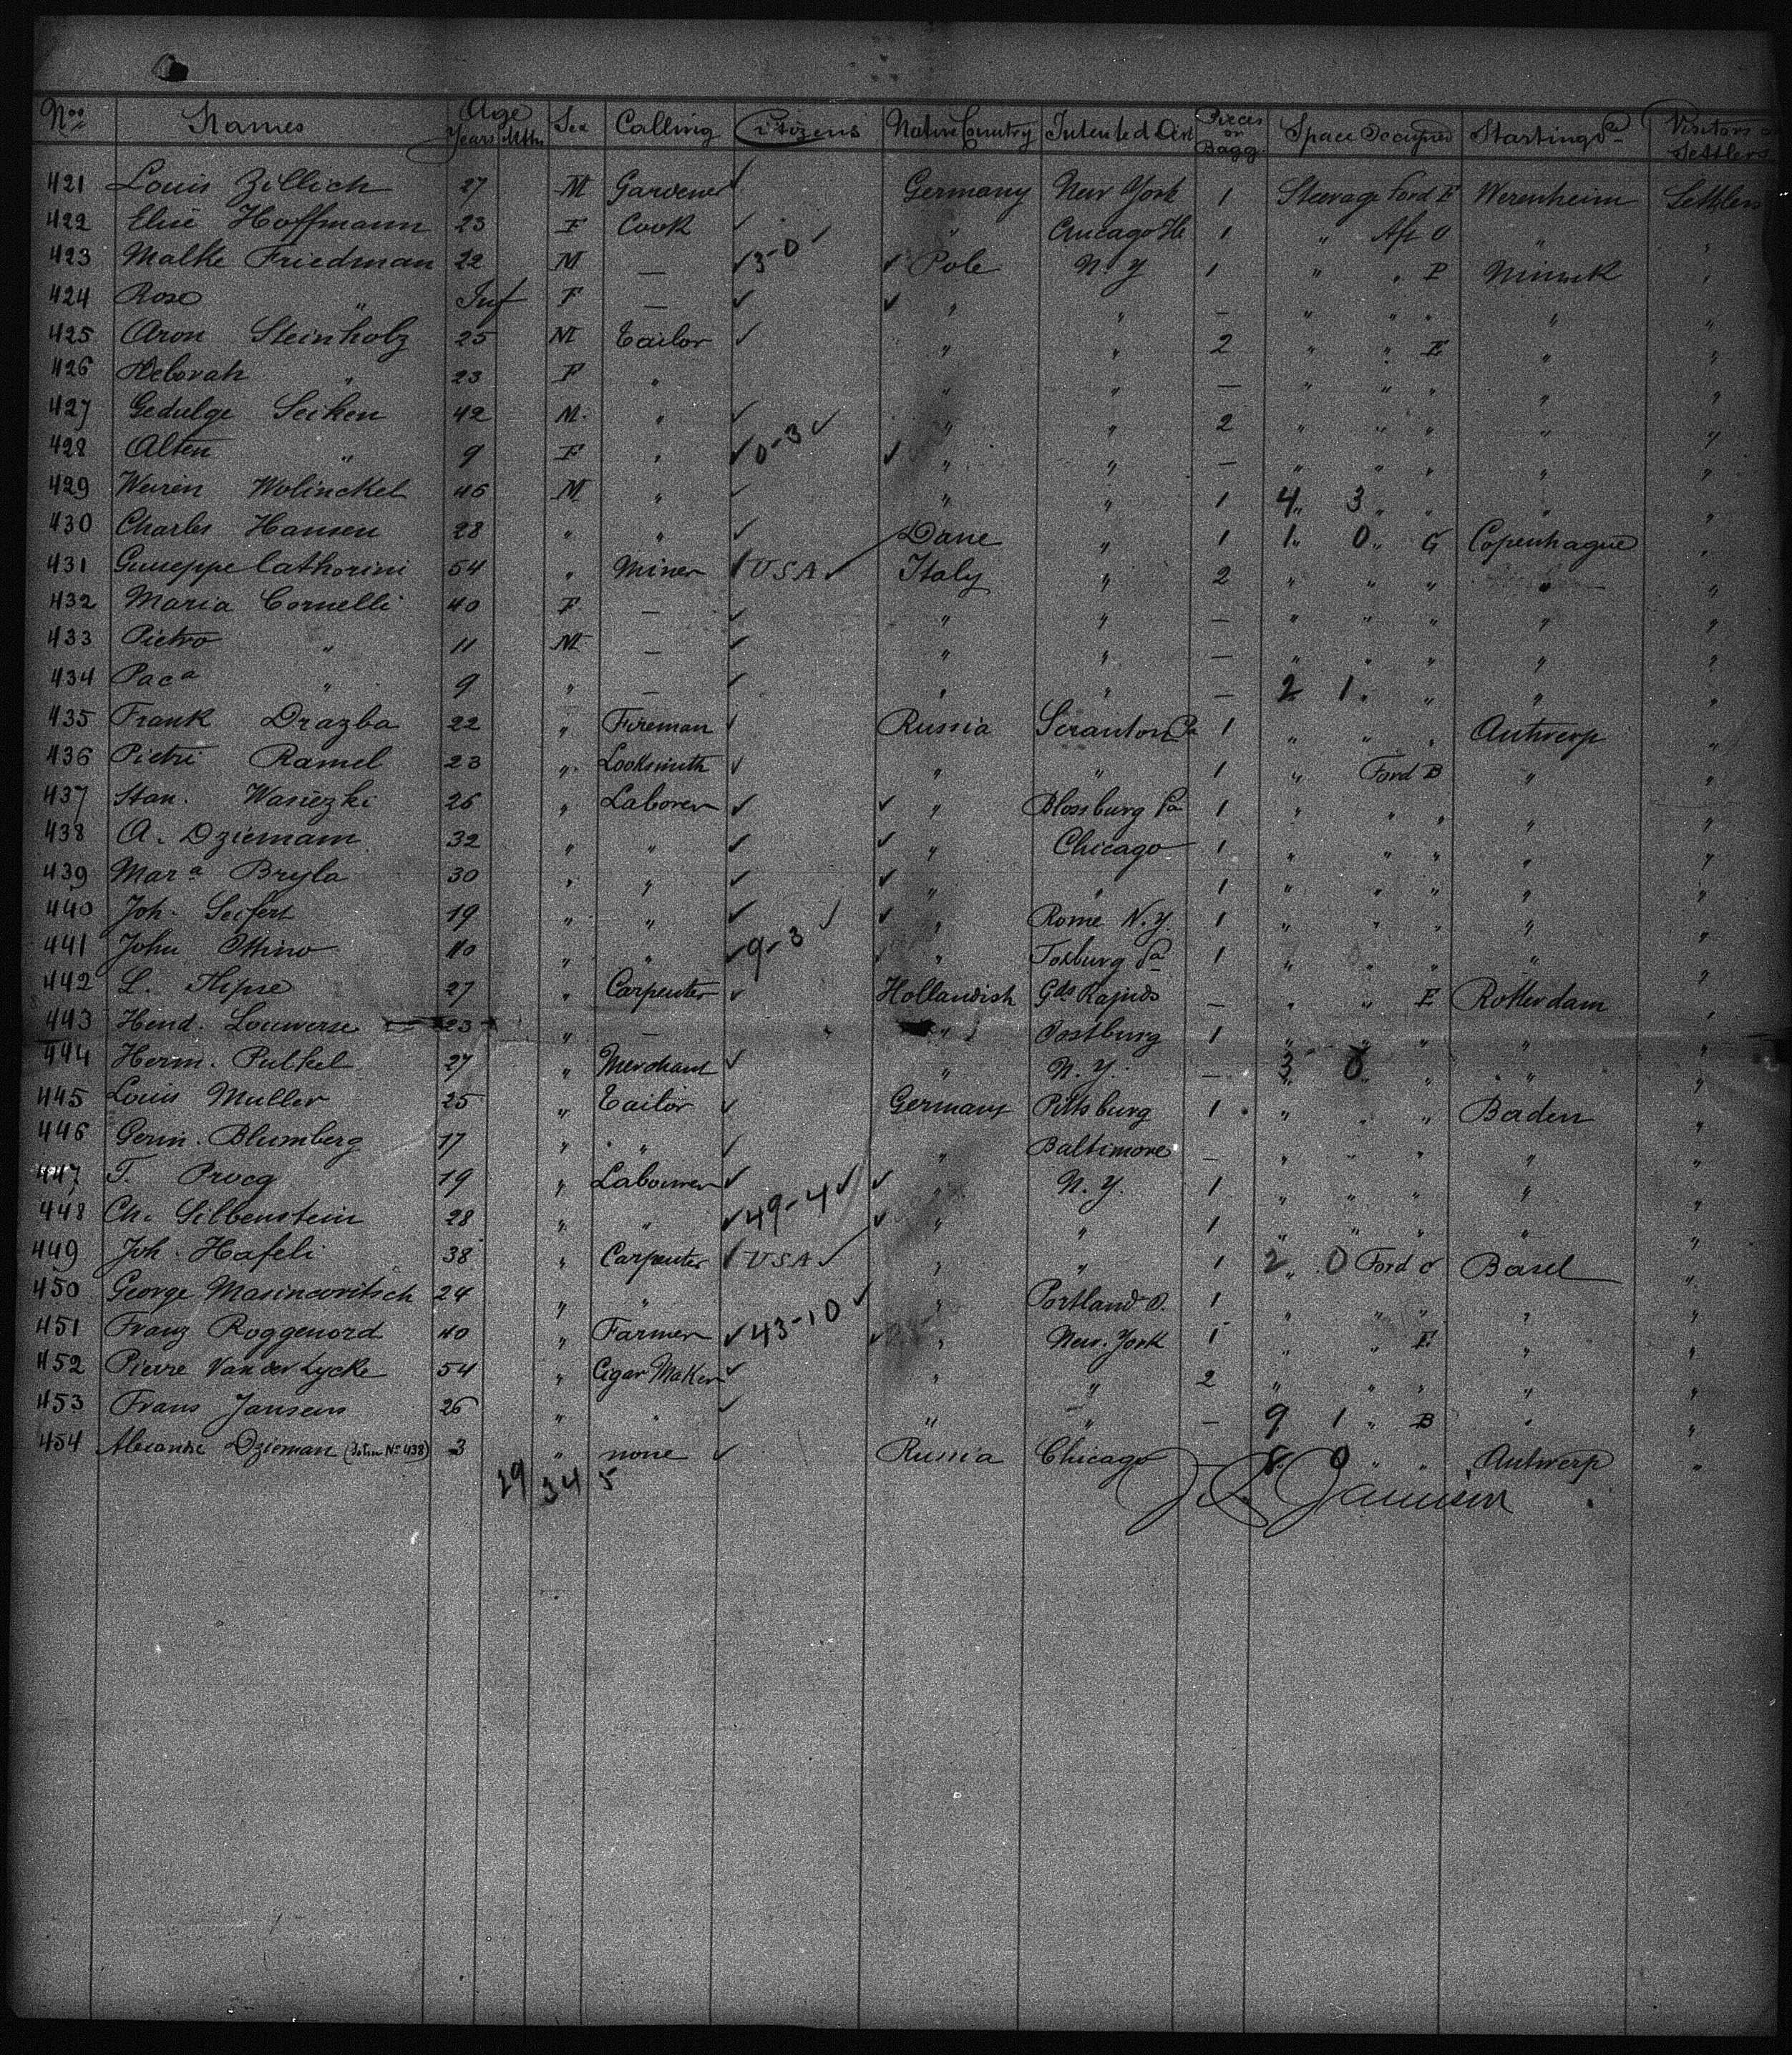 Nos Names Age Years Mths Sex Calling Citizens Native Country Intented Dist Pieces or Bagg. Space Occupied Starting Visitors or Settlers
421 Louis Zillich 27 M Gardener ✓ Germany New York 1 Steerage Ford E Werenheim Settlers
422 Elise Hoffmann 23 F Cook ✓ " Chicago Ills 1 " Aft O " "
423 Malke Friedman 22 M — ✓ 3-0 ✓ ✓ Pole N.Y 1 " " P "
424 Rosa " Inf F — ✓ ✓ " " — " " " " "
425 Aron Steinholz 25 M Tailor ✓ " " 2 " " E " "
426 Deborah " 23 F " " " — " " " " "
427 Gedulge Seiken 42 M. " ✓ " " 2 " " " " "
428 Alten " 9 F " ✓ 0-3 ✓ ✓ " " — " " " " "
429 Weiren Wolinckel 46 M " ✓ " " 1 4 " 3 " " " "
430 Charles Hansen 28 " " ✓ Dane " 1 1 " 0 " G Copenhague "
431 Guiseppe Cathorini 54 " Miner ✓ USA ✓ Italy " 2 " " " " "
432 Maria Cornelli 40 F — ✓ " " — " " " " "
433 Pietro " 11 M — ✓ " " — " " " " "
434 Paca " 9 " — ✓ " " — 2 1 " " " "
435 Frank Drazba 22 " Fireman ✓ Russia Scranton Pa 1 " " " Antwerp "
436 Pietri Ramel 23 " Locksmith ✓ " " 1 " Ford B " "
437 Stan. Wasiezki 26 " Laborer ✓ ✓ " Blossburg Pa 1 " " " " "
438 A. Dziemam 32 " " ✓ ✓ " Chicago 1 " " " " "
439 Mara Bryla 30 " " ✓ ✓ " " 1 " " " " "
440 Joh. Seifert 19 " " ✓ ✓ " Rome N.Y. 1 " " " " "
441 John Ottino 40 " " ✓ 9-3 ✓ " Foxburg Pa 1 " " " " "
442 L. Hipse 27 " Carpenter ✓ Hollandish Gds Rapids — " " E Rotterdam "
443 Hend. Louwerse 23 " — " Oostburg 1 " " " " "
444 Herm. Pulkel 27 " Merchant ✓ " N.Y. — 3 0 " " "
445 Louis Muller 25 " Tailor ✓ Germany Pittsburg 1 " " " Baden "
446 Germ. Blumberg 17 " " ✓ " Baltimore — " " " " "
447 T. Procq 19 " Labourer ✓ ✓ " N.Y. 1 " " " " "
448 Ch. Silbenstein 28 " " ✓ 49-4 ✓ ✓ " " 1 " " " " "
449 Joh. Hafeli 38 " Carpenter ✓ USA ✓ " " 1 2 " 0 Ford O Basel "
450 George Masincovitsch 24 " " " Portland O. 1 " " " " "
451 Franz Roggenord 40 " Farmer ✓ 43-10 ✓ ✓ " New-York 1 " " E " "
452 Pierre Van der Lycke 54 " Cigar Maker ✓ " " 2 " " " " "
453 Frans Jansens 26 " " ✓ " " — 9 1 " B " "
454 Dzieman (John No 438) 3 " none ✓ Russia Chicago — 8 0 " " Antwerp "
29 34 5